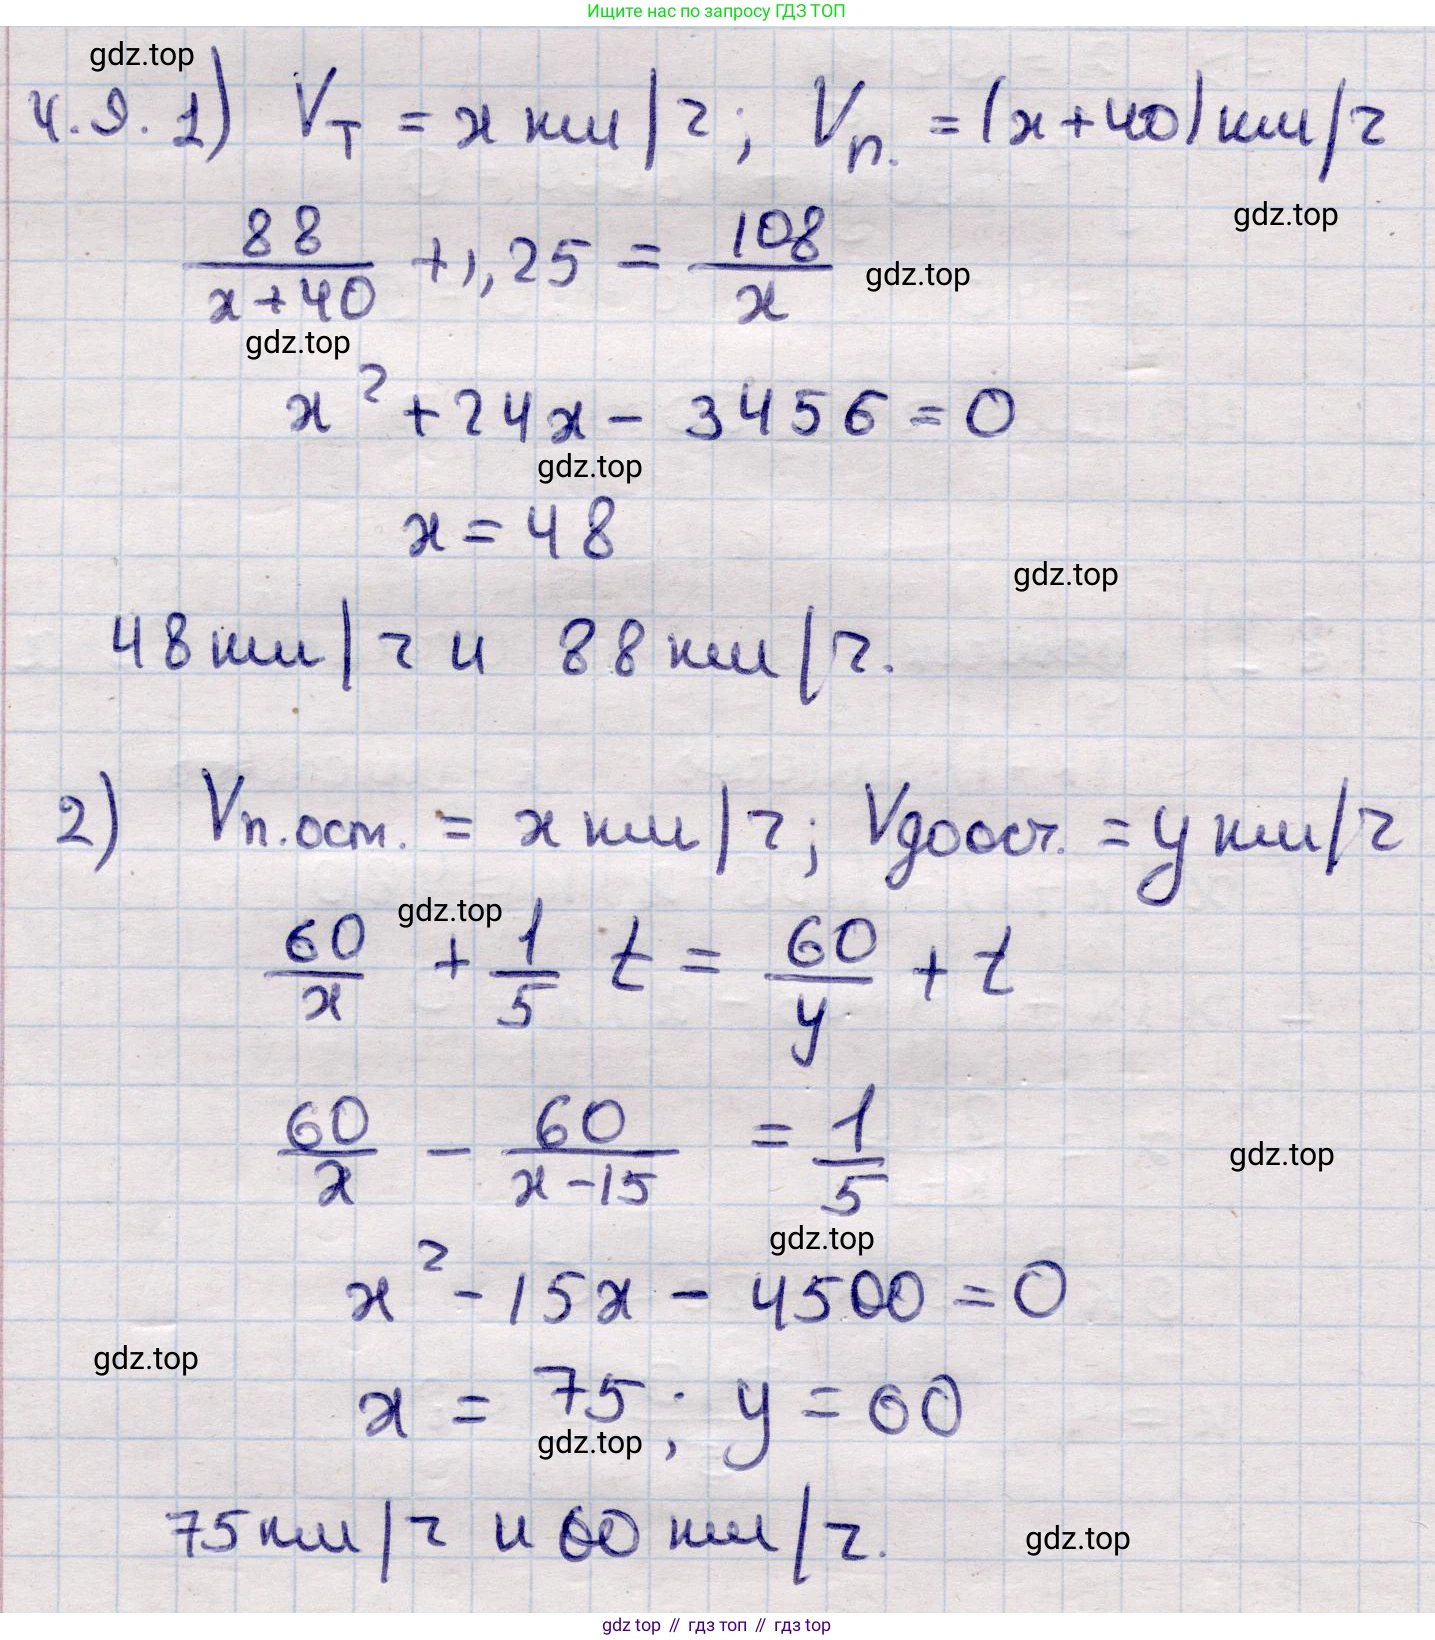 Ищите нас по запросу ГДЗ ТОП
gdz.top
4.9. 1) Vт = x км/ч; Vп. = (x+40) км/ч
gdz.top
88/(x+40) + 1,25 = 108/x
gdz.top
gdz.top
x² + 24x - 3456 = 0
gdz.top
x = 48
gdz.top
48 км/ч и 88 км/ч.
2) Vп.ост. = x км/ч; Vдоост. = y км/ч
gdz.top
60/x + 1/5 t = 60/y + t
60/x - 60/(x-15) = 1/5
gdz.top
gdz.top
x² - 15x - 4500 = 0
gdz.top
x = 75; y = 60
gdz.top
75 км/ч и 60 км/ч.
gdz.top
gdz top // гдз топ // гдз top